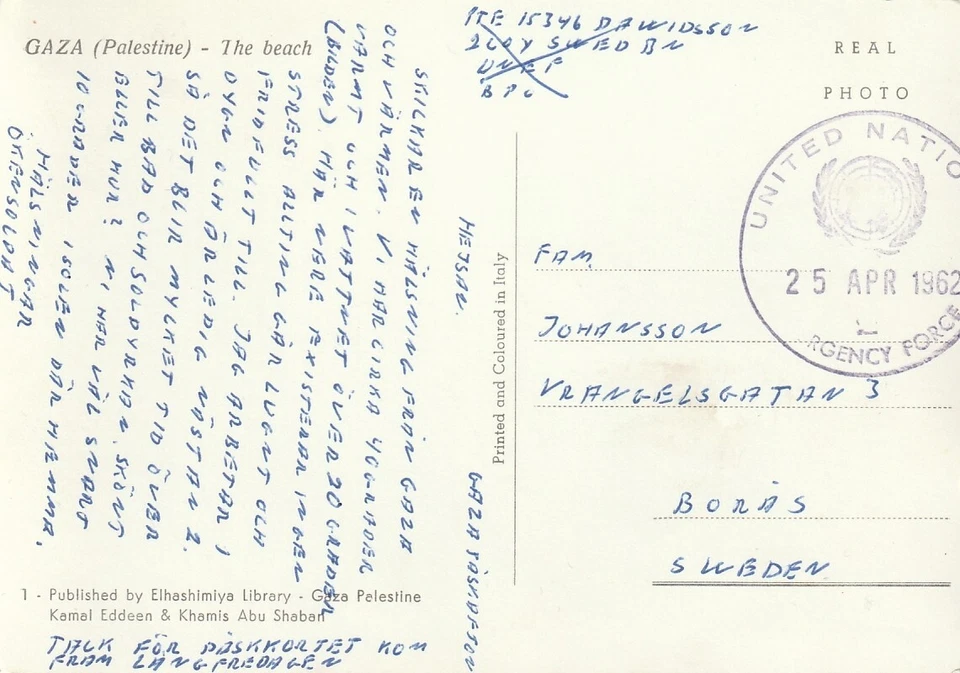 GAZA (Palestine) - The beach
PTE 15346 DAWIDSSON
SWED BN
UNEF
REAL
PHOTO
UNITED NATIO
25 APR 1962
RGENCY FORCE
HEJSAN. GAZA PÅSKAFTON
SKICKAR EN HÄLSNING FRÅN GAZA
OCH VÄRMEN. VI HAR CIRKA 40 GRADER
VARMT OCH I VATTNET ÖVER 20 GRADER
(BILDEN). HÄR NERE EXISTERAR INGEN
STRESS ALLTING GÅR LUGNT OCH
FRIDFULLT TILL. JAG ARBETAR 1
DYGN OCH ÄR LEDIG NÄSTAN 2.
SÅ DET BLIR MYCKET TID ÖVER
TILL BAD OCH SOLDYRKAN. SKÖNT
ELLER HUR? NI HAR VÄL SNART
10 GRADER I SOLEN DÄR HEMMA.
HÄLSNINGAR
ÖKENSOLDAT
TACK FÖR PÅSKKORTET KOM
FRAM LÅNGFREDAGEN
Printed and Coloured in Italy
FAM.
JOHANSSON
VRANGELSGATAN 3
BORÅS
SWEDEN
1 - Published by Elhashimiya Library - Gaza Palestine
Kamal Eddeen & Khamis Abu Shaban